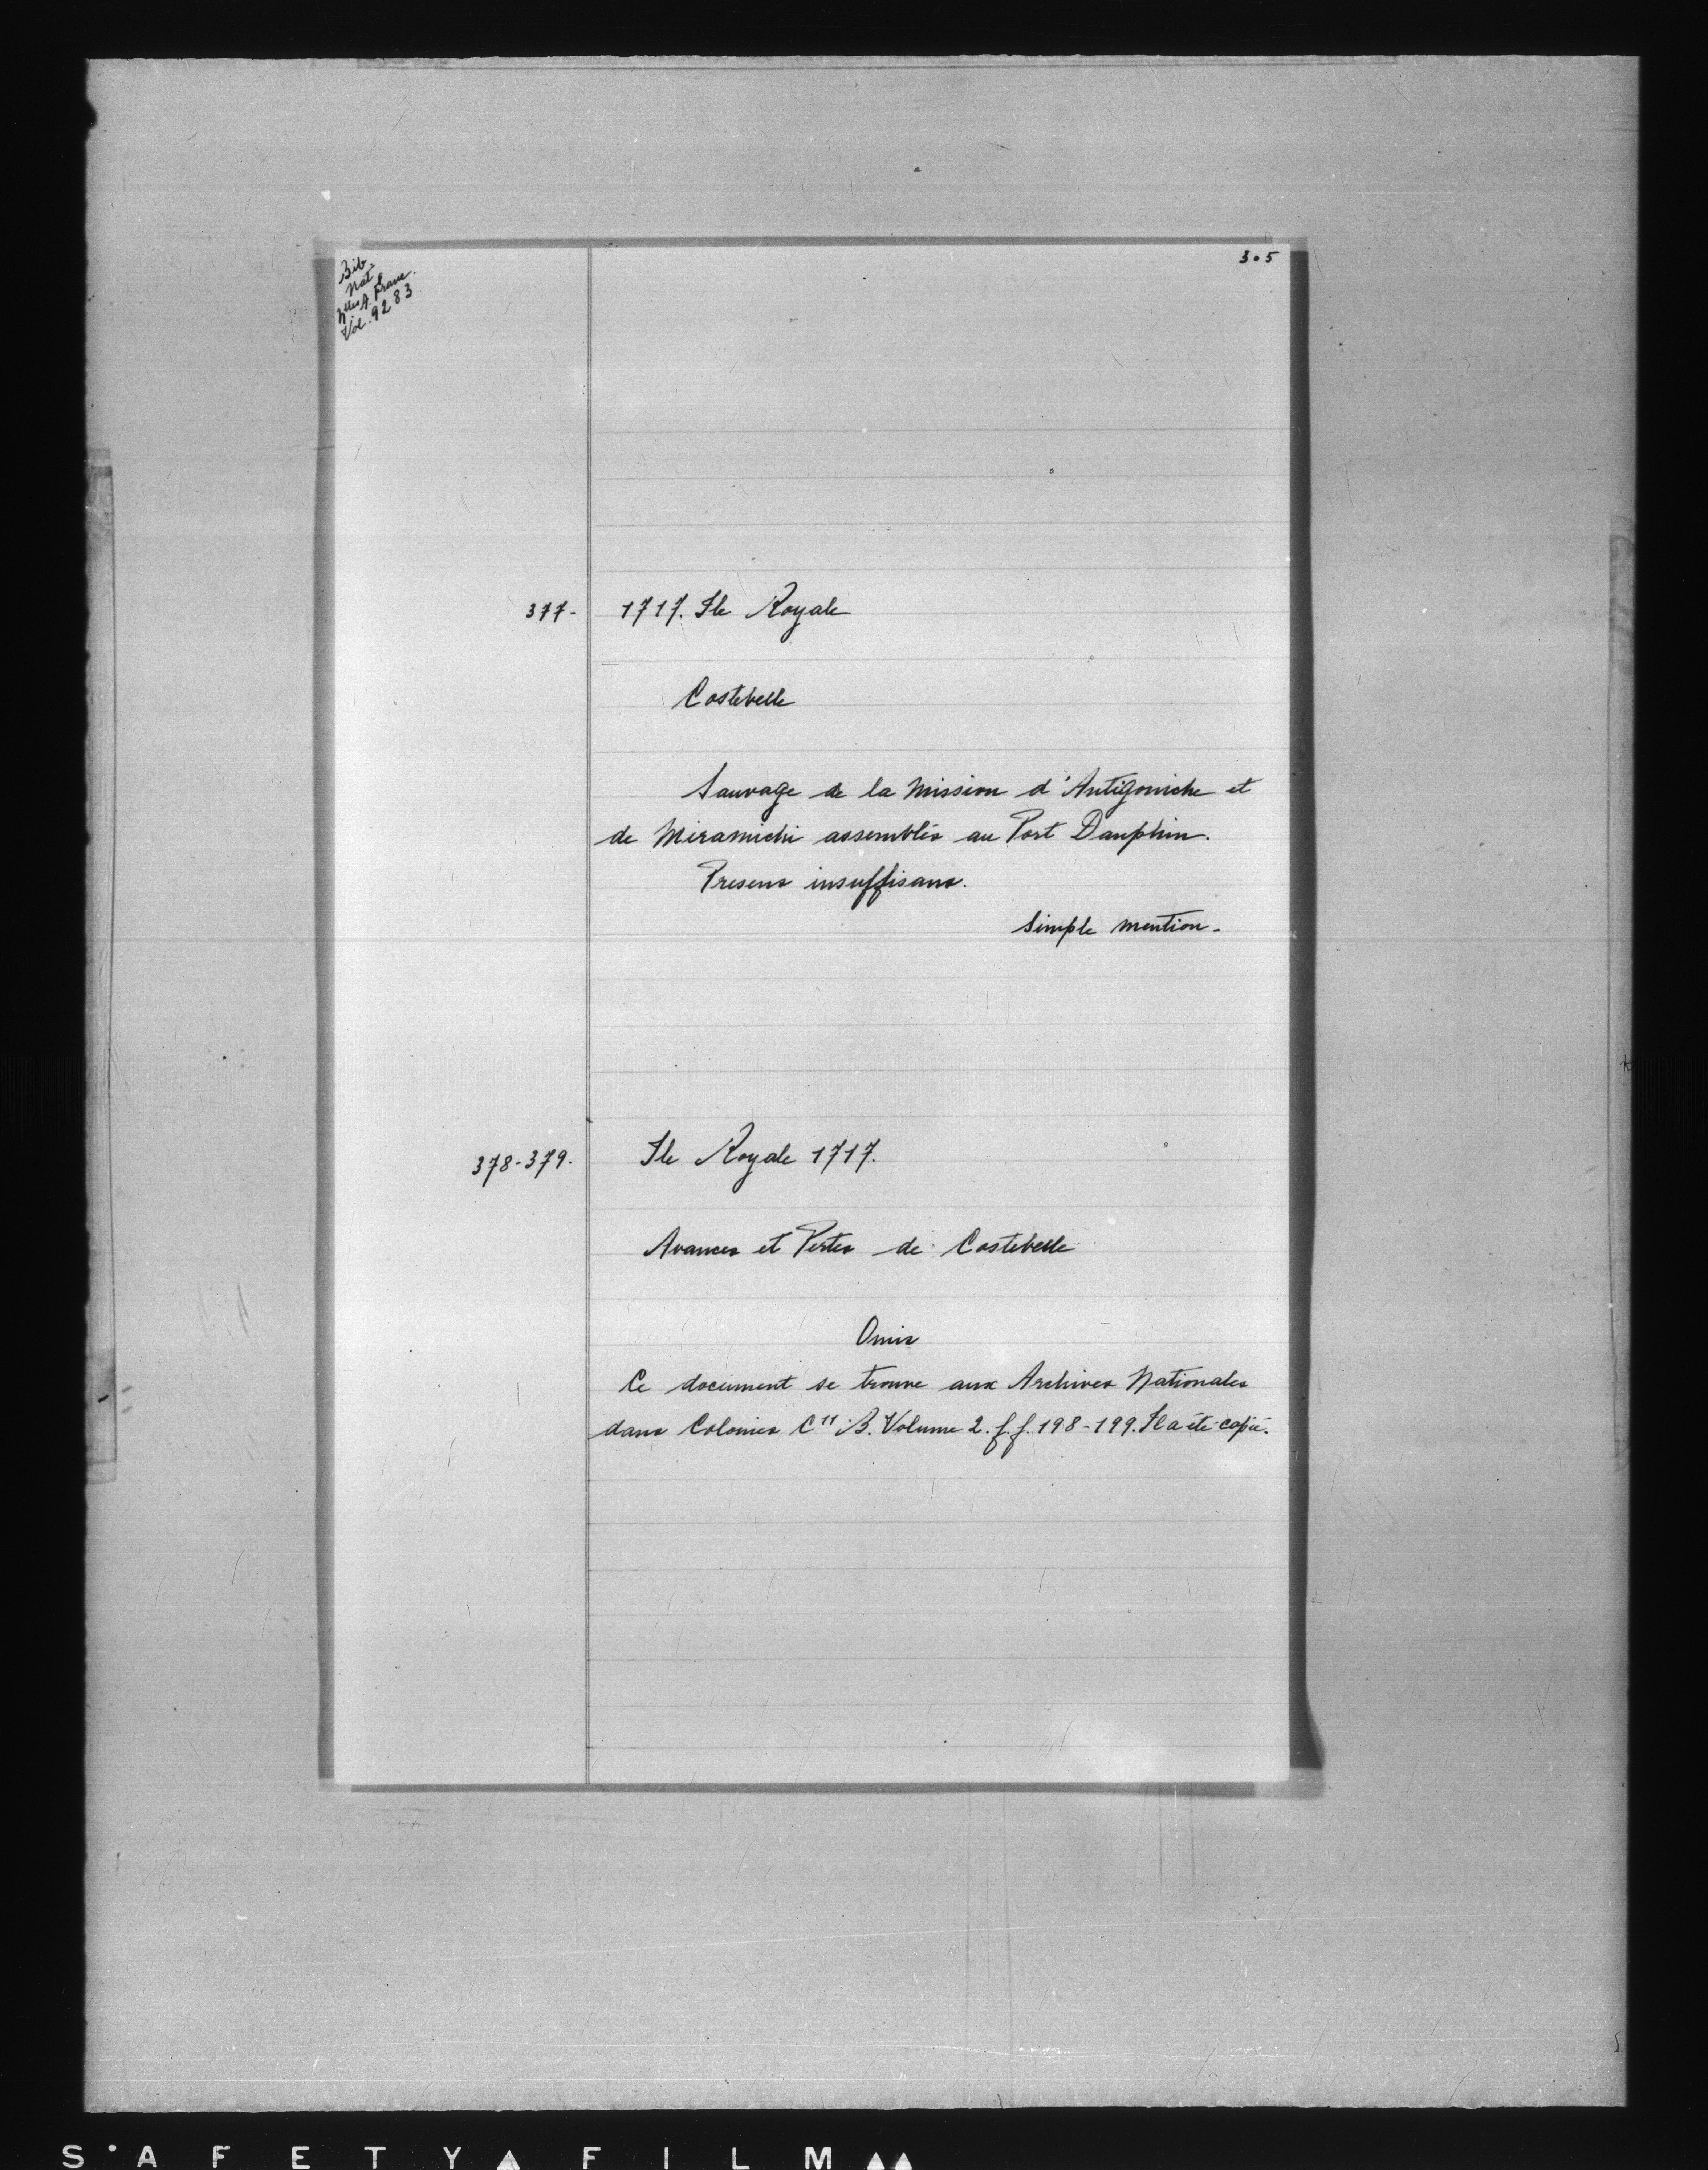 305
Bib.
Nat.
Nlles A. Franc.
Vol. 9283
377- 1717. Ile Royale
Costebelle
Sauvage de la Mission d'Antigoniche et
de Miramichi assemblés au Port Dauphin.
Presens insuffisans.
Simple mention.
378-379. Ile Royale 1717.
Avances et Pertes de Costebelle
Omis
Ce document se trouve aux Archives Nationales
dans Colonies C11 B. Volume 2. f.f. 198-199. Il a été copié.
SAFETY FILM